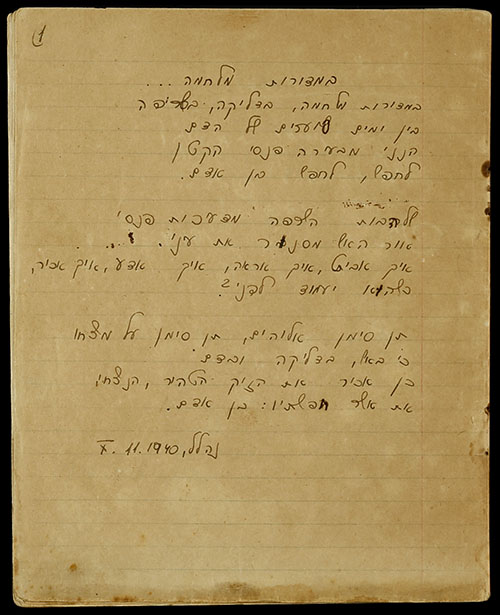 1
במדורות מלחמה...
במדורות מלחמה, בדליקה, בשריפה
בין ימים סוערים של הדם
הנני מבעירה פנסי הקטן
לחפש, לחפש בן אדם.
שלהבות השרפה מדעיכות פנסי
אור האש מסנוור את עיני.
איך אביט, איך אראה, איך אדע, איך אכיר,
כשהוא יעמוד לפני?
תן סימן אלוהים, תן סימן על מצחו
כי באש, בדליקה ובדם
כן אכיר את הזיק הטהור, הנצחי,
את אשר חפשתיו: בן אדם.
נהלל, X. 11.1940